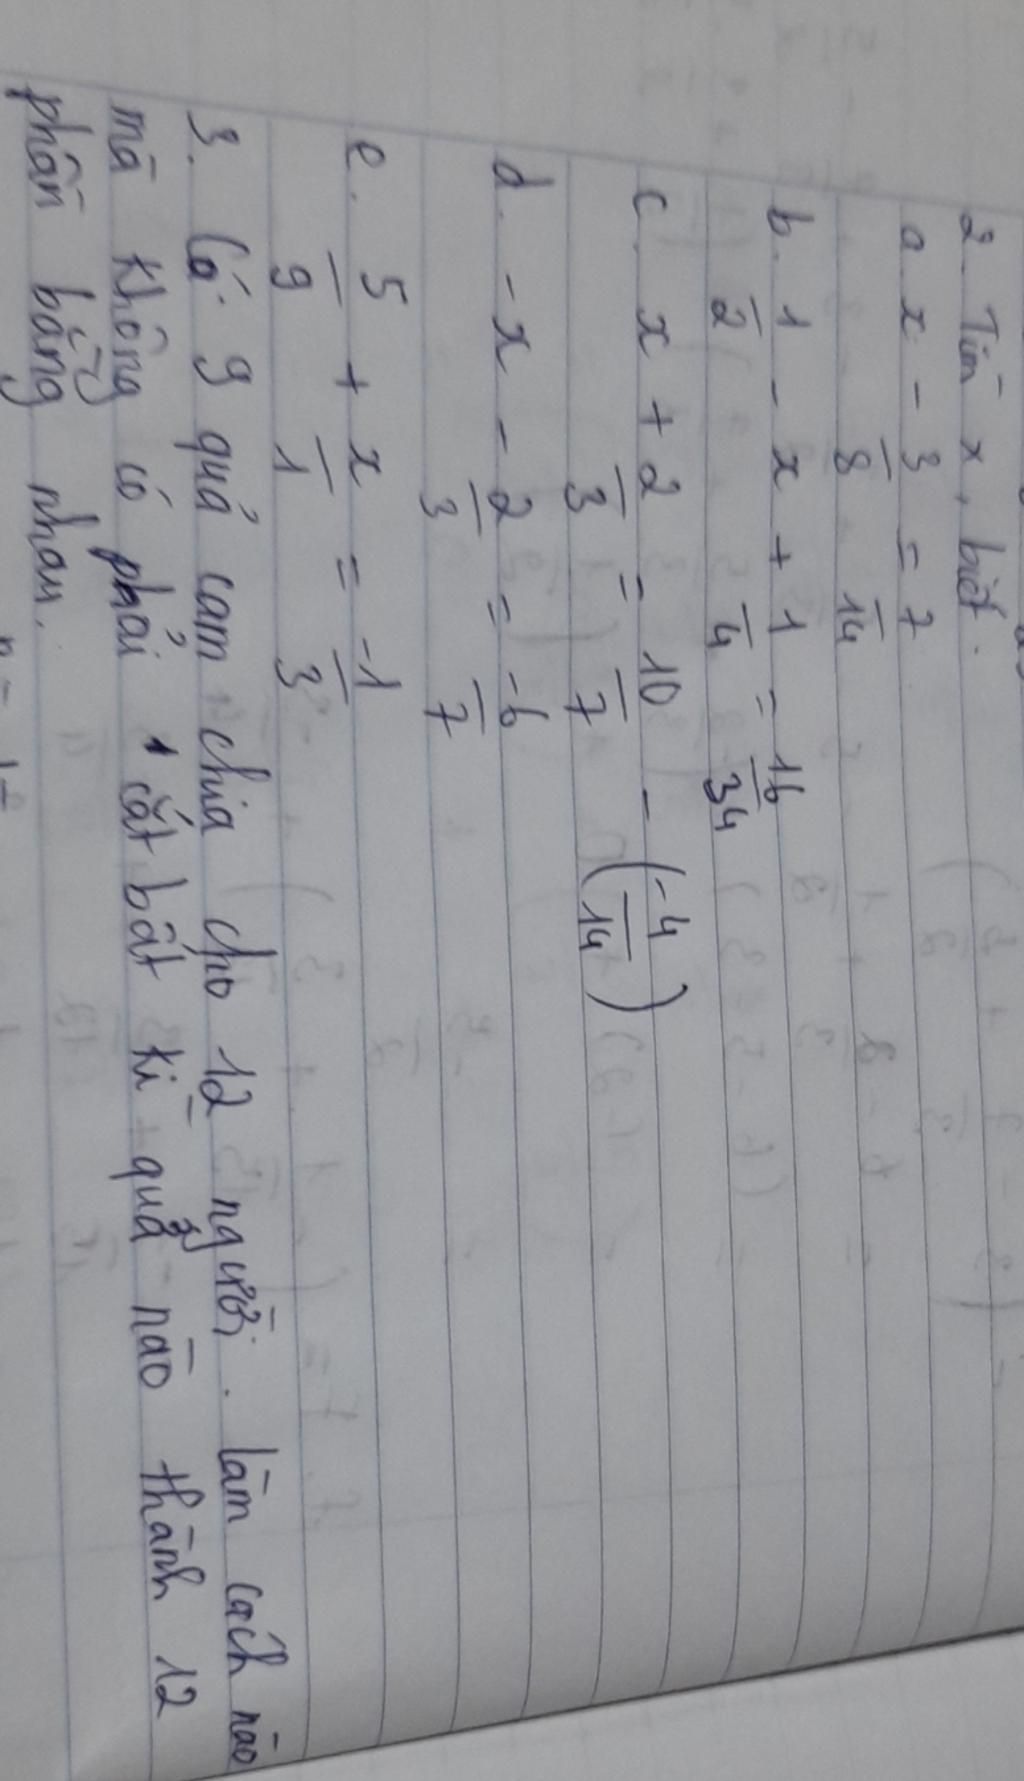 2. Tìm x, biết.
a. x - 3/8 = 7/14
b. 1/2 - x + 1/4 = 16/34
c. x + 2/3 = 10/7 - (-4/14)
d. -x - 2/3 = -6/7
e. 5/9 + x/1 = -1/3
3. Có 9 quả cam chia cho 12 người. làm cách nào
mà không có phải cắt bất kì quả nào thành 12
phần bằng nhau.